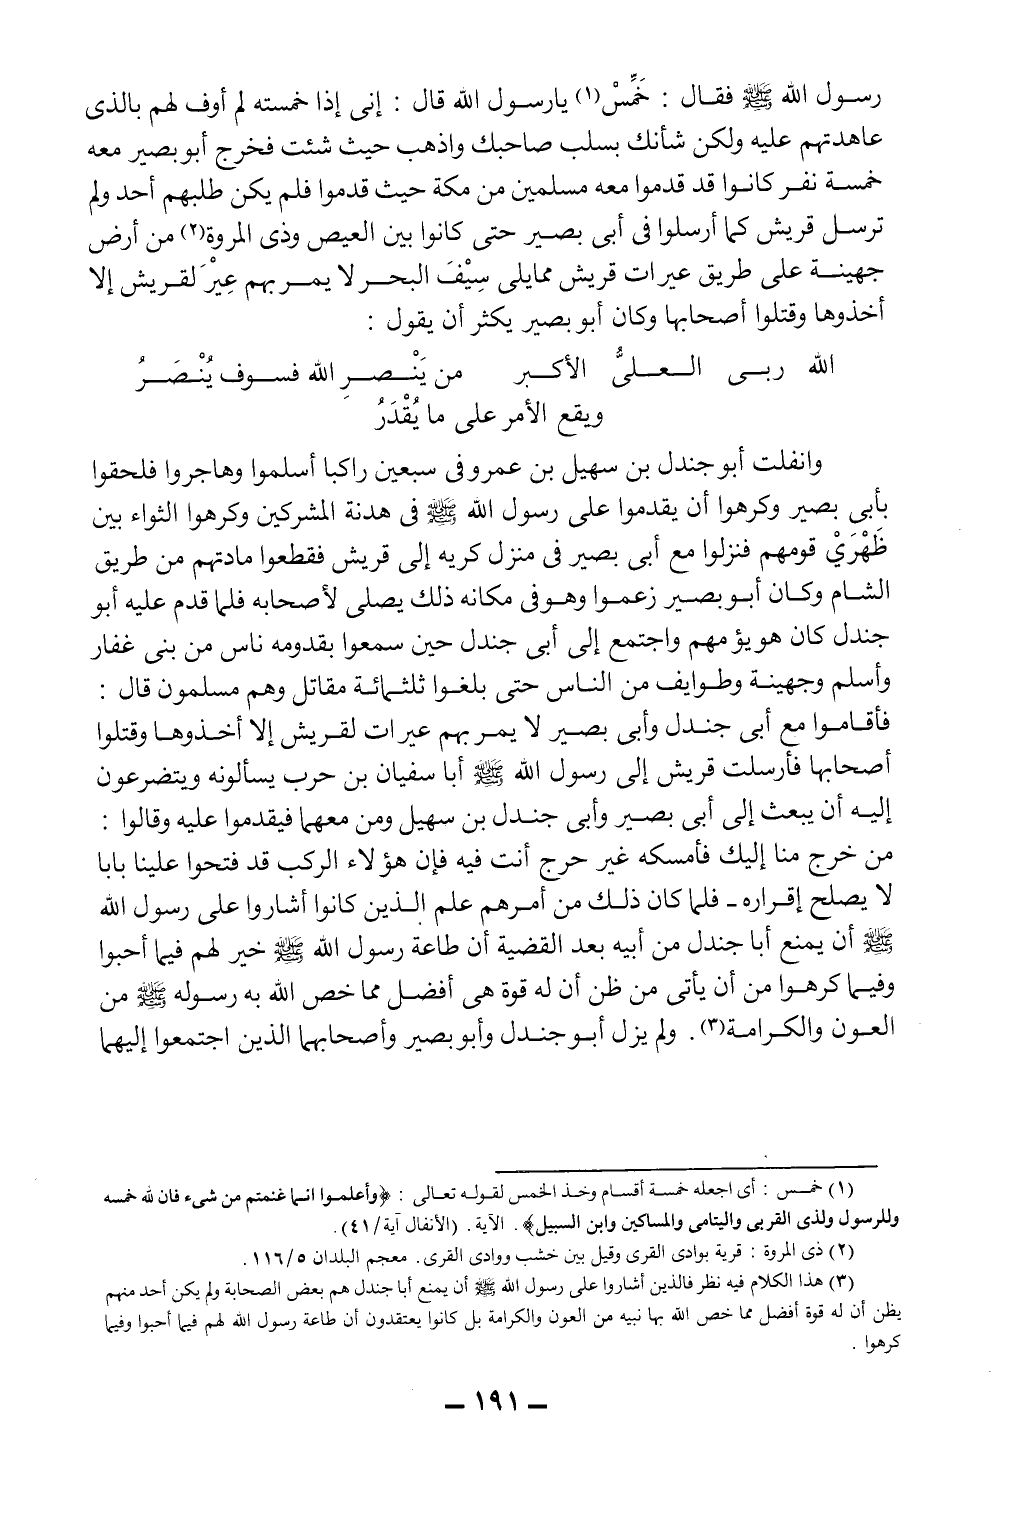 رسـول الله ﷺ فقـال : خَمِّسْ(١) يارسـول الله قال : إنى إذا خمسته لم أوف لهم بالذى
عاهدتهم عليه ولكن شأنك بسلب صاحبك واذهب حيث شئت فخرج أبو بصير معه
خمسـة نفـر كانـوا قد قدموا معه مسلمين من مكة حيث قدموا فلم يكن طلبهم أحد ولم
ترسـل قريش كما أرسلوا فى أبى بصـير حتى كانوا بين العيص وذى المروة(٢) من أرض
جهينـة على طريق عيرات قريش ممايلى سِيْفَ البحـر لا يمـر بهم عِيْرَ لقـريش إلا
أخذوها وقتلوا أصحابها وكان أبو بصير يكثر أن يقول :
الله ربـى العـلىُّ الأكـبر من يَنْـصـرِ الله فسـوف يُنْـصَـرُ
ويقع الأمر على ما يُقْدَرُ
وانفلت أبو جندل بن سهيل بن عمرو فى سبعين راكبا أسلموا وهاجروا فلحقوا
بأبى بصير وكرهوا أن يقدموا على رسول الله ﷺ فى هدنة المشركين وكرهوا الثواء بين
ظَهْرَيْ قومهم فنزلوا مع أبى بصير فى منزل كريه إلى قريش فقطعوا مادتهم من طريق
الشـام وكـان أبـو بصـير زعمـوا وهـو فى مكانه ذلك يصلى لأصحابه فلما قدم عليه أبو
جندل كان هو يؤمهم واجتمع إلى أبى جندل حين سمعوا بقدومه ناس من بنى غفار
وأسلم وجهينـة وطـوايف من النـاس حتى بلغـوا ثلثـمائـة مقاتل وهم مسلمون قال :
فأقـامـوا مع أبى جنـدل وأبى بصـير لا يمـر بهم عيرات لقـريش إلا أخـذوهـا وقتلوا
أصحابها فأرسلت قريش إلى رسول الله ﷺ أبا سفيان بن حرب يسألونه ويتضرعون
إليـه أن يبعث إلى أبى بصـير وأبى جنـدل بن سهيل ومن معهما فيقدموا عليه وقالوا :
من خرج منا إليك فأمسكه غير حرج أنت فيه فإن هؤلاء الركب قد فتحوا علينا بابا
لا يصلح إقـراره ـ فلما كان ذلـك من أمـرهم علم الـذين كانوا أشاروا على رسول الله
ﷺ أن يمنع أبا جندل من أبيه بعد القضية أن طاعة رسول الله ﷺ خير لهم فيما أحبوا
وفيـما كرهـوا من أن يأتى من ظن أن له قوة هى أفضـل مما خص الله به رسـوله ﷺ من
العـون والكـرامـة(٣). ولم يزل أبـو جنـدل وأبو بصير وأصحابهما الذين اجتمعوا إليهما
(١) خمـس : أى اجعله خمسـة أقسـام وخـذ الخمس لقولـه تعـالى : ﴿وأعلمـوا انـما غنمتم من شىء فان لله خمسه
وللرسول ولذى القربى واليتامى والمساكين وابن السبيل﴾. الآية. (الأنفال آية/٤١).
(٢) ذى المروة : قرية بوادى القرى وقيل بين خشب ووادى القرى. معجم البلدان ١١٦/٥.
(٣) هذا الكلام فيه نظر فالذين أشاروا على رسول الله ﷺ أن يمنع أبا جندل هم بعض الصحابة ولم يكن أحد منهم
يظن أن له قوة أفضل مما خص الله بها نبيه من العون والكرامة بل كانوا يعتقدون أن طاعة رسول الله لهم فيما أحبوا وفيما
كرهوا .
ـ ١٩١ ـ